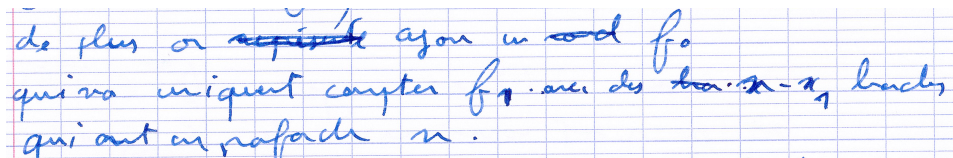 de plus on ajou un fo
qui va uniquent compter f1 avec des n - n1 boucles
qui ont un n.